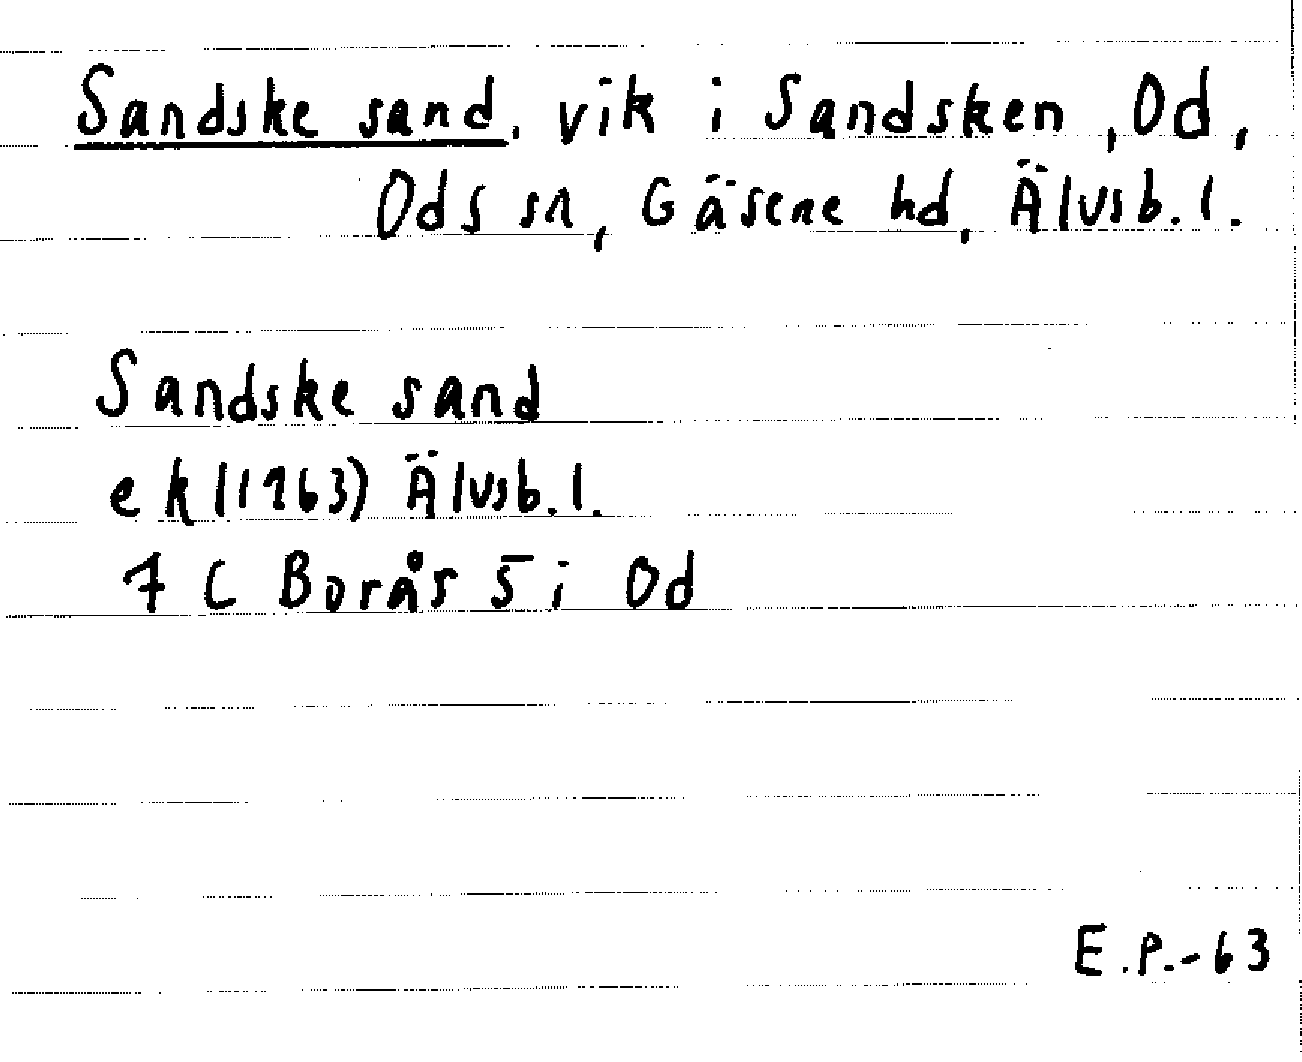 Sandske sand, vik i Sandsken, Od,
Ods sn, Gäsene hd, Älvsb. l.
Sandske sand
ek (1963) Älvsb. l.
7 C Borås 5 i Od
E.P.-63